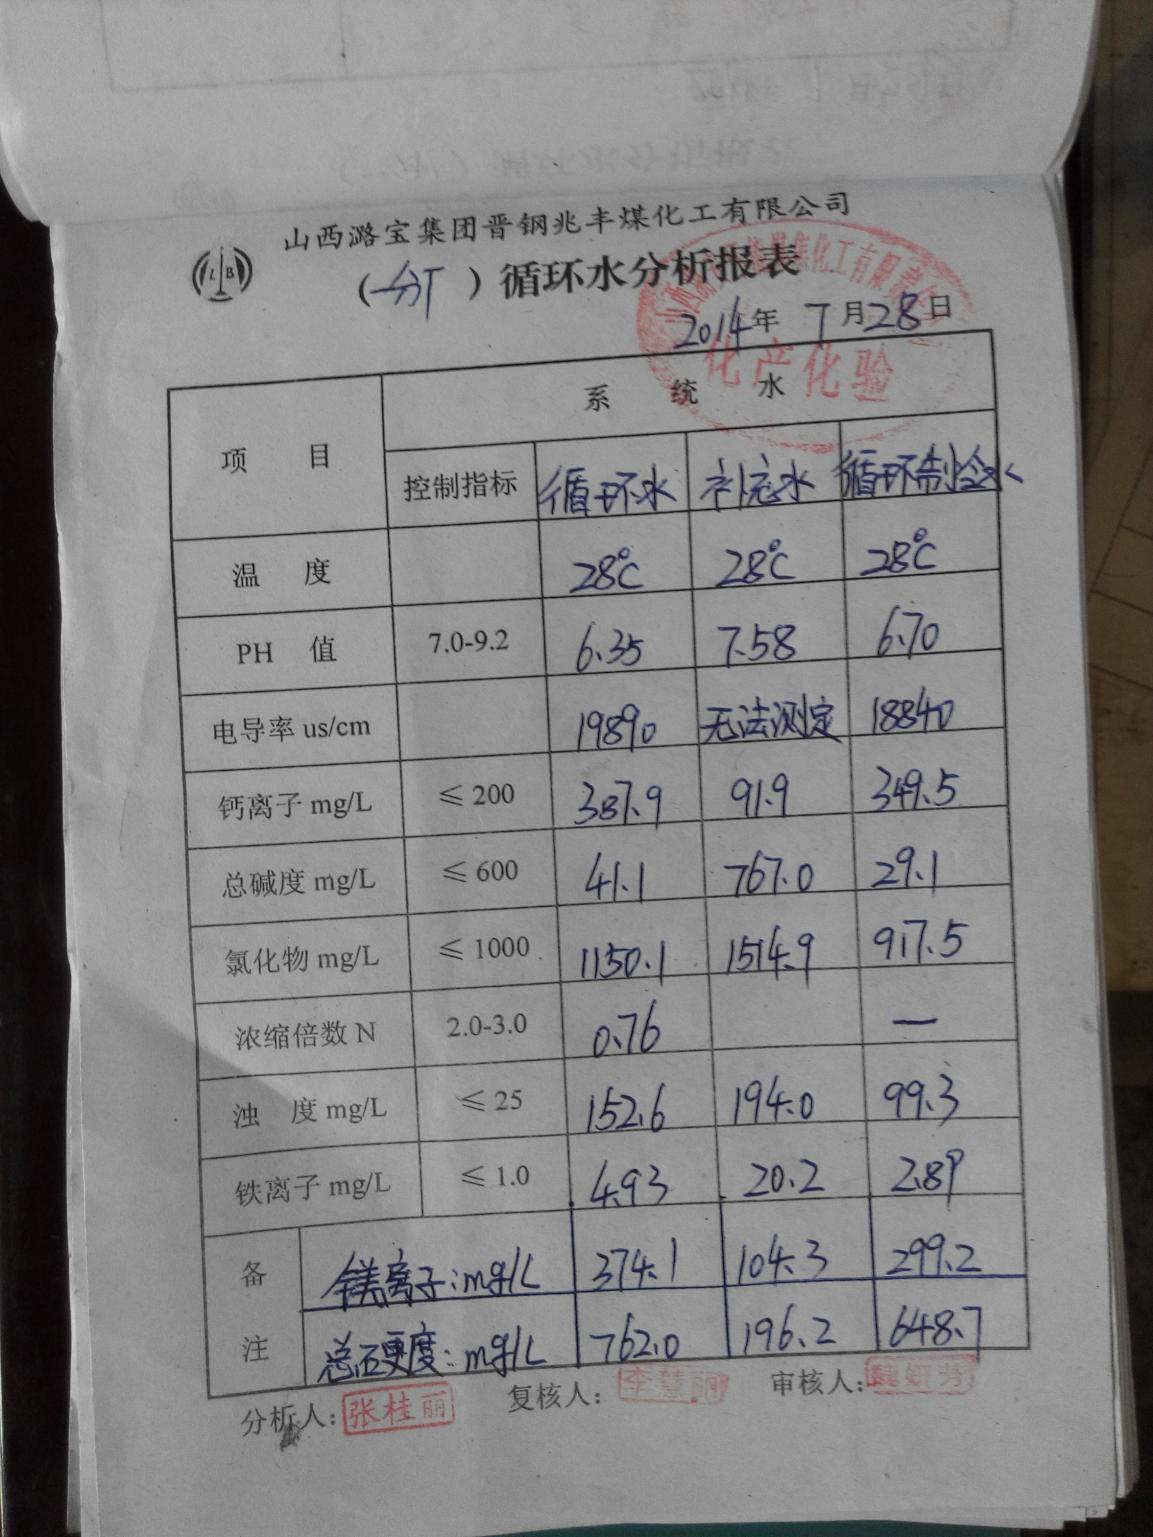 山西潞宝集团晋钢兆丰煤化工有限公司
LB
(一分厂) 循环水分析报表
2014年 7月28日
化产化验
项 目 系 统 水
控制指标 循环水 补充水 循环制冷水
温 度 28℃ 28℃ 28℃
PH 值 7.0-9.2 6.35 7.58 6.70
电导率 us/cm 19890 无法测定 18840
钙离子 mg/L ≤ 200 387.9 91.9 349.5
总碱度 mg/L ≤ 600 41.1 767.0 29.1
氯化物 mg/L ≤ 1000 1150.1 1514.9 917.5
浓缩倍数 N 2.0-3.0 0.76 —
浊 度 mg/L ≤ 25 152.6 194.0 99.3
铁离子 mg/L ≤ 1.0 4.93 20.2 2.89
备注 镁离子:mg/L 374.1 104.3 299.2
总硬度:mg/L 762.0 196.2 648.7
分析人: 张桂丽 复核人: 李慧丽 审核人: 魏妍芳